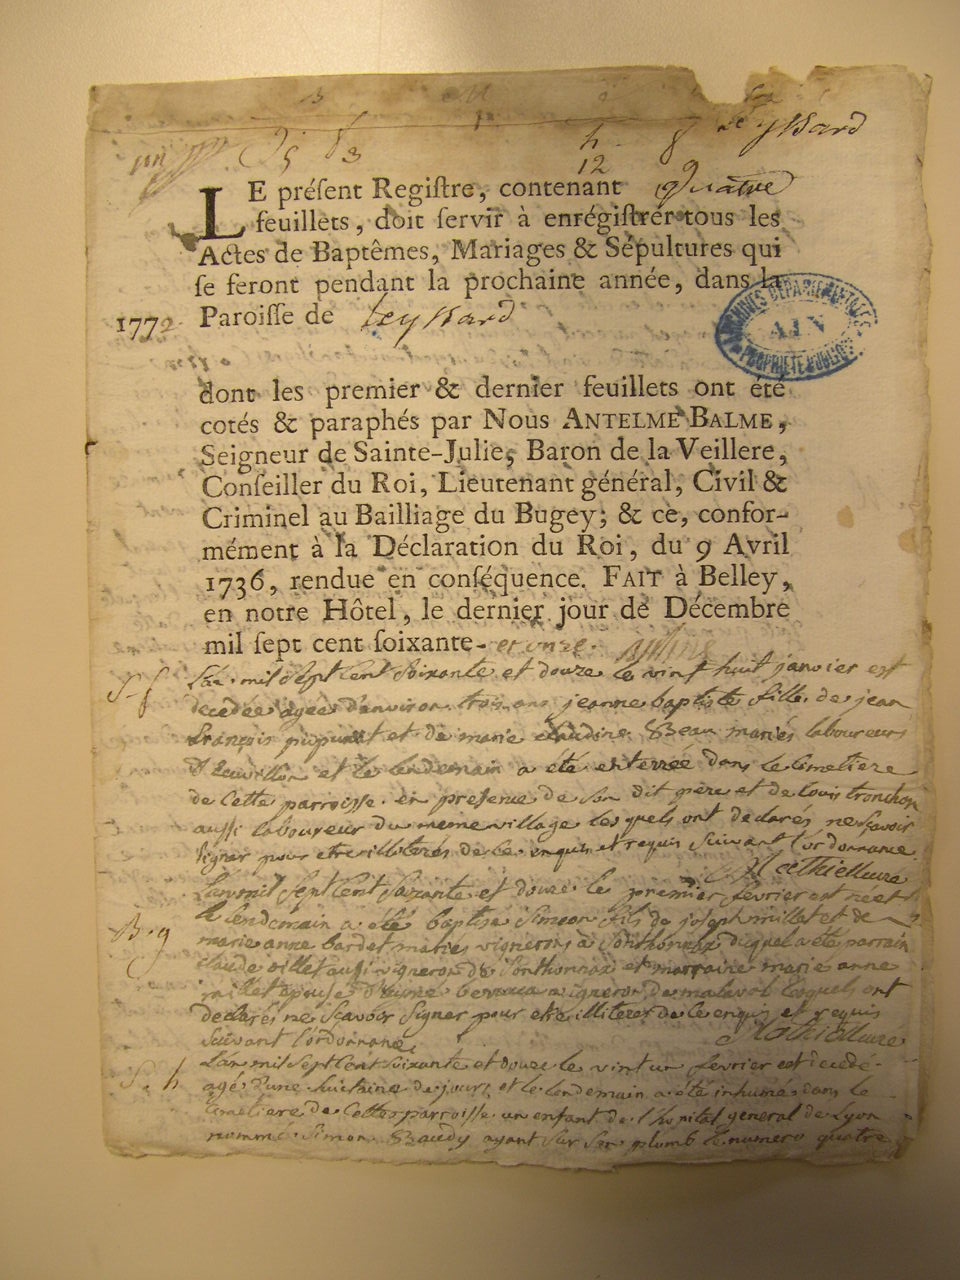 Leyssard
h
12
LE préſent Regiſtre, contenant Quatre
feuillets, doit ſervir à enrégiſtrer tous les
Actes de Baptêmes, Mariages & Sépultures qui
ſe feront pendant la prochaine année, dans la
1772 Paroiſſe de Leyssard
ARCHIVES DEPARTEMENTALES
AIN
PROPRIETE PUBLIQUE
dont les premier & dernier feuillets ont été
cotés & paraphés par Nous ANTELME BALME,
Seigneur de Sainte-Julie, Baron de la Veillere,
Conſeiller du Roi, Lieutenant général, Civil &
Criminel au Bailliage du Bugey; & ce, confor-
mément à la Déclaration du Roi, du 9 Avril
1736, rendue en conſéquence. FAIT à Belley,
en notre Hôtel, le dernier jour de Décembre
mil ſept cent ſoixante-et onze.
S. f L'an mil sept cent soixante et douze le vint huit janvier est
decedée agée d'environ trois ans jeanne baptiste fille de jean
françois et de marie claudine Beau mariés laboureurs
et le lendemain a été enterrée dans le cimetiere
de cette parroisse en presence de son dit père et de louis tronchon
aussi laboureur du meme village lesquels ont declarés ne sçavoir
signer pour etre illiterés de ce enquis et requis suivant l'ordonnance
Mathieu curé
L'an mil sept cent soixante et douze le premier fevrier est né et
B. g le lendemain a été baptisé Simeon fils de joseph millet et de
marie anne bardet mariés vignerons à Sonthonnax duquel a été parrain
claude millet aussi vigneron de Sonthonnax et marraine marie anne
millet epouse vigneron de lesquels ont
declarés ne scavoir signer pour etre illiterés de ce enquis et requis
suivant l'ordonnance Mathieu curé
S. h L'an mil sept cent soixante et douze le vint un fevrier est decedé
agé d'une huictaine de jours et le lendemain a été inhumé dans le
cimetiere de cette parroisse un enfant de l'hopital general de Lyon
nommé Simon Baudy ayant sur son plomb le numero quatre